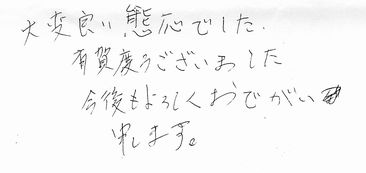 大変良い態応でした.
有賀度うございました
今後もよろしくおでがい
申します。